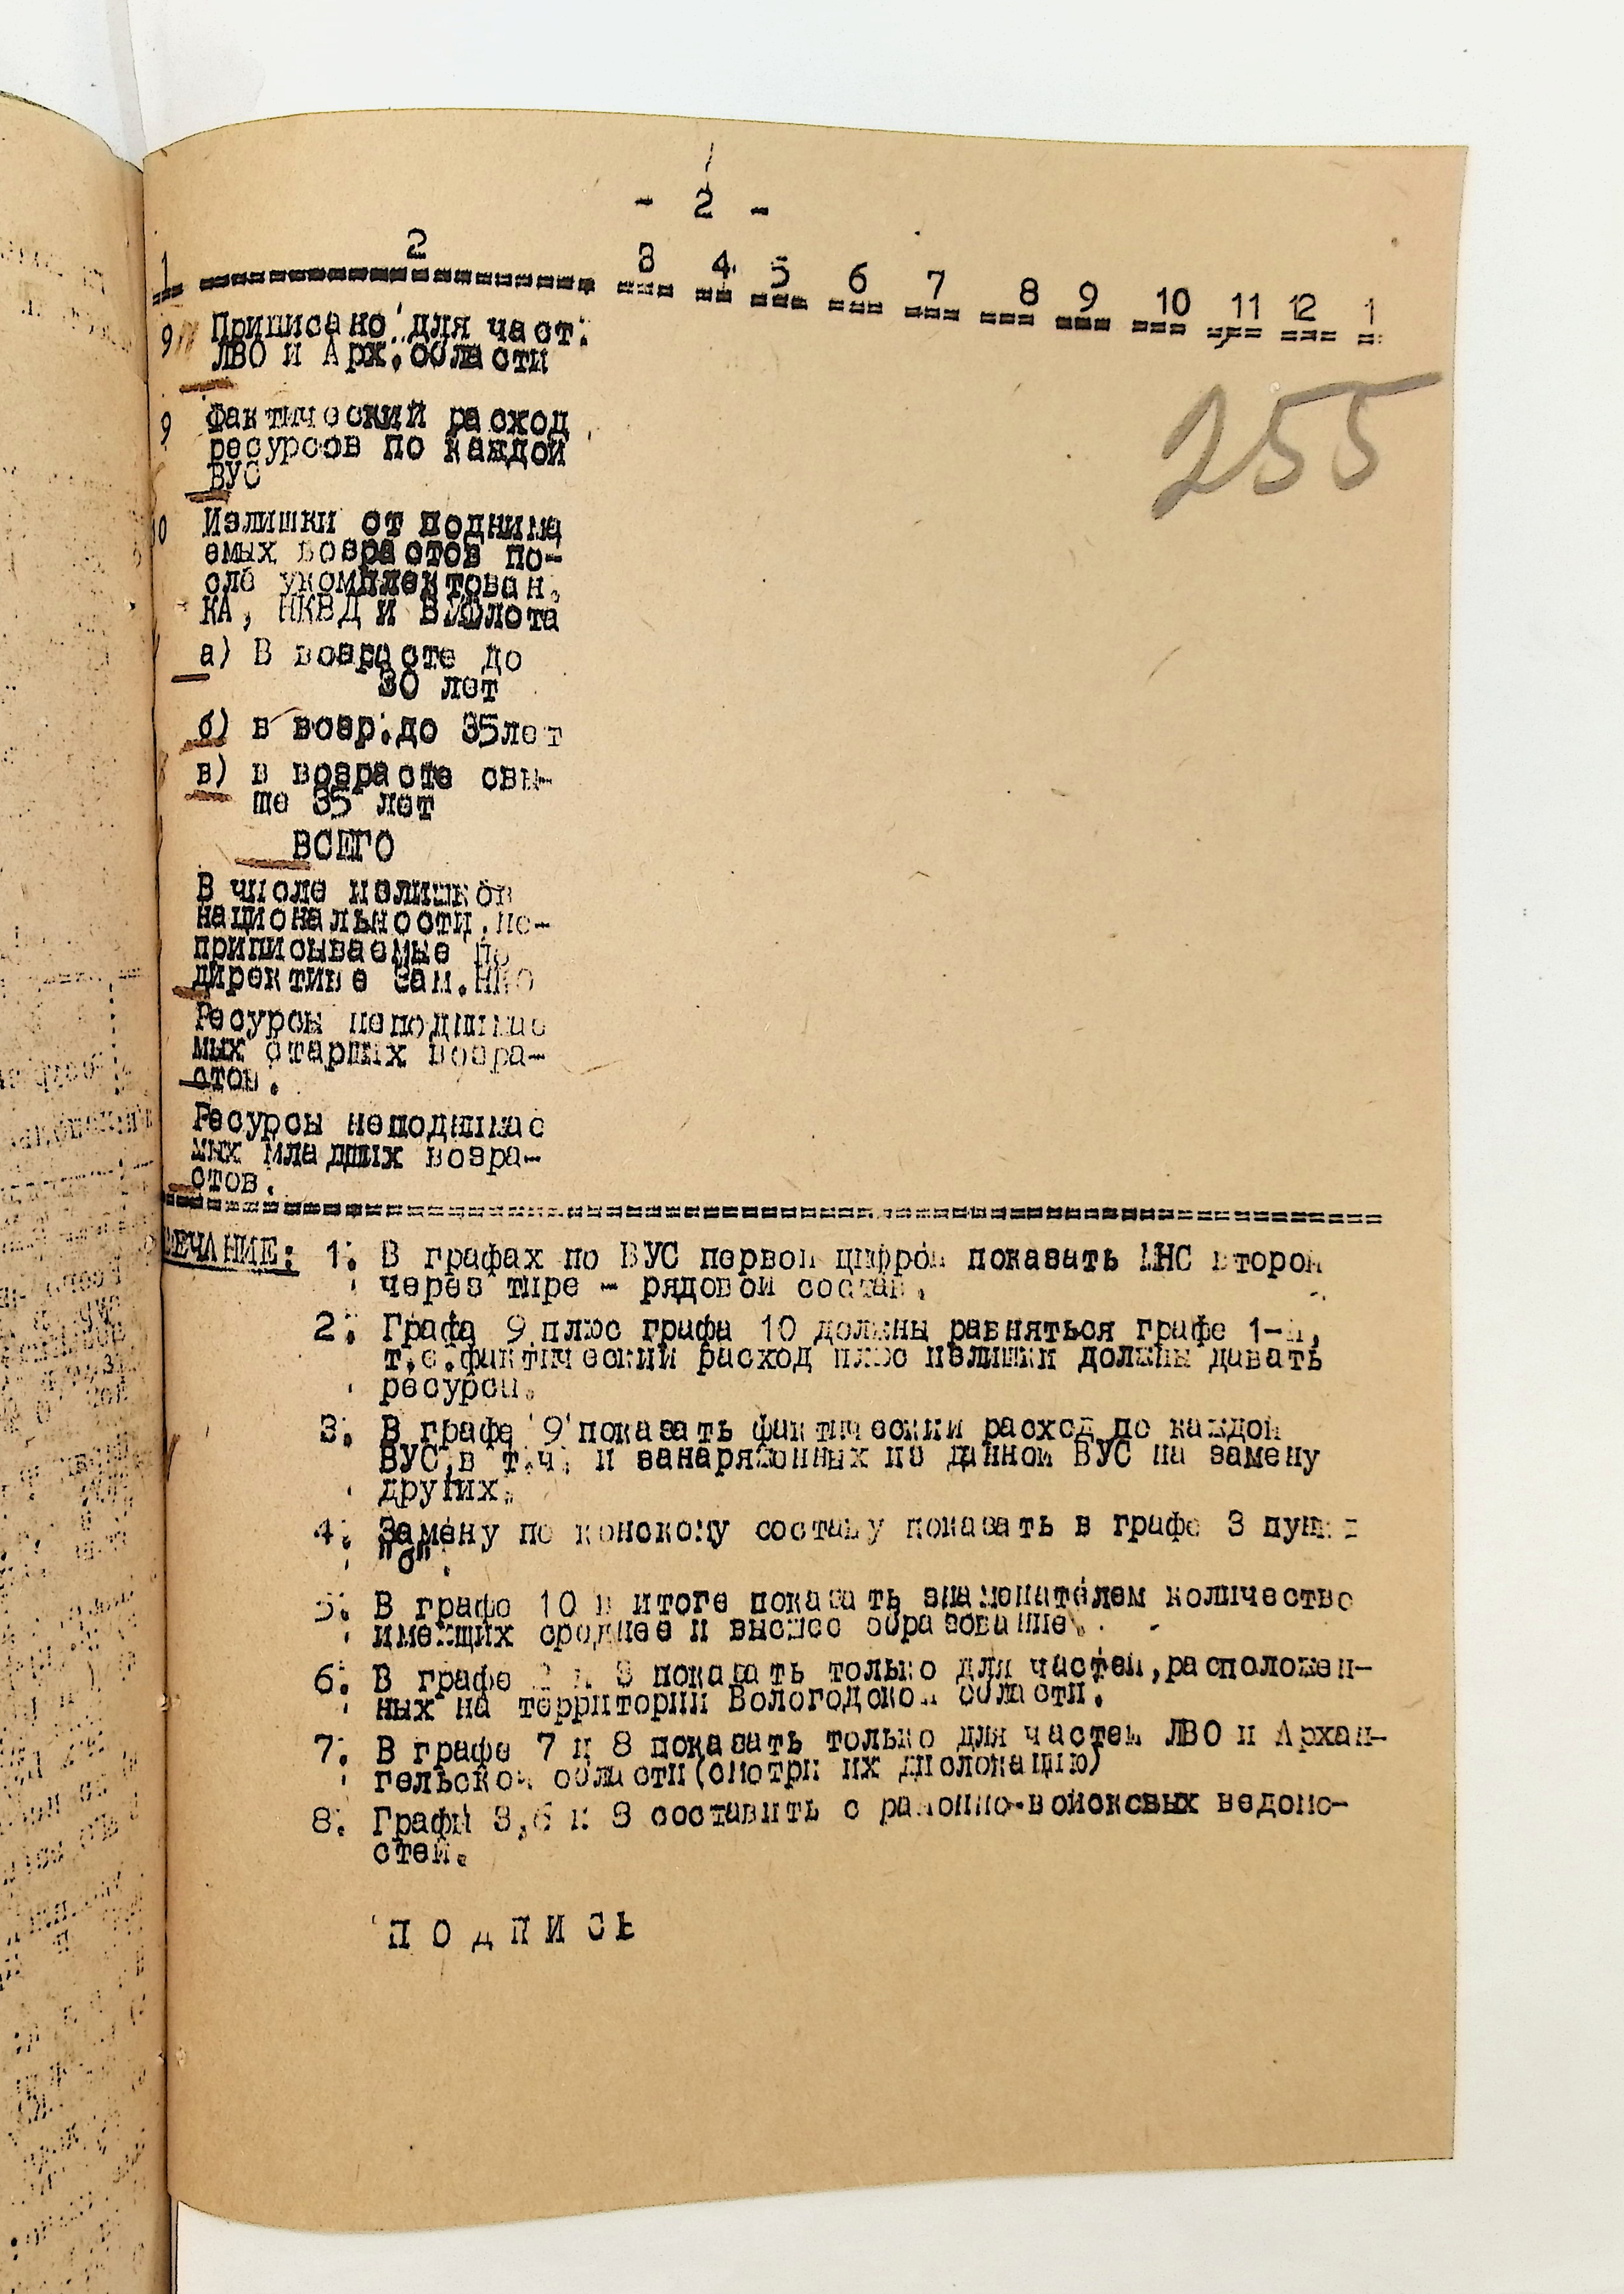 - 2 -
1 2 3 4 5 6 7 8 9 10 11 12 1
9 Приписано для част.
ЛВО и Арх.области
9 Фактический расход
ресурсов по каждой
ВУС
10 Излишки от поднима
емых возрастов по-
сле укомплектован.
КА, НКВД и ВМФлота
а) В возрасте до
30 лет
б) в возр.до 35лет
в) в возрасте свы-
ше 35 лет
ВСЕГО
В числе излишков
национальности,не-
приписываемые по
директиве Зам.НКО
Ресурсы неподнимае
мых старших возра-
стов.
Ресурсы неподнимае
мых младших возра-
стов.
ЕЧАНИЕ: 1. В графах по ВУС первой цифрой показать МНС второй
через тире - рядовой состав.
2. Графа 9 плюс графа 10 должны равняться графе 1-й,
т.е.фактический расход плюс излишки должны давать
ресурсы.
3. В графе 9 показать фактический расход по каждой
ВУС,в т.ч. и занаряженных по данной ВУС на замену
других.
4. Замену по конскому составу показать в графе 3 пункт
"б".
5. В графе 10 в итоге показать знаменателем количество
имеющих среднее и высшее образование.
6. В графе и показать только для частей,расположен-
ных на территории Вологодской области.
7. В графе 7 и 8 показать только для частей ЛВО и Архан-
гельской области(смотри их дислокацию)
8. Графы 3,6 и 8 составить с районно-войсковых ведомо-
стей.
ПОДПИСЬ
255